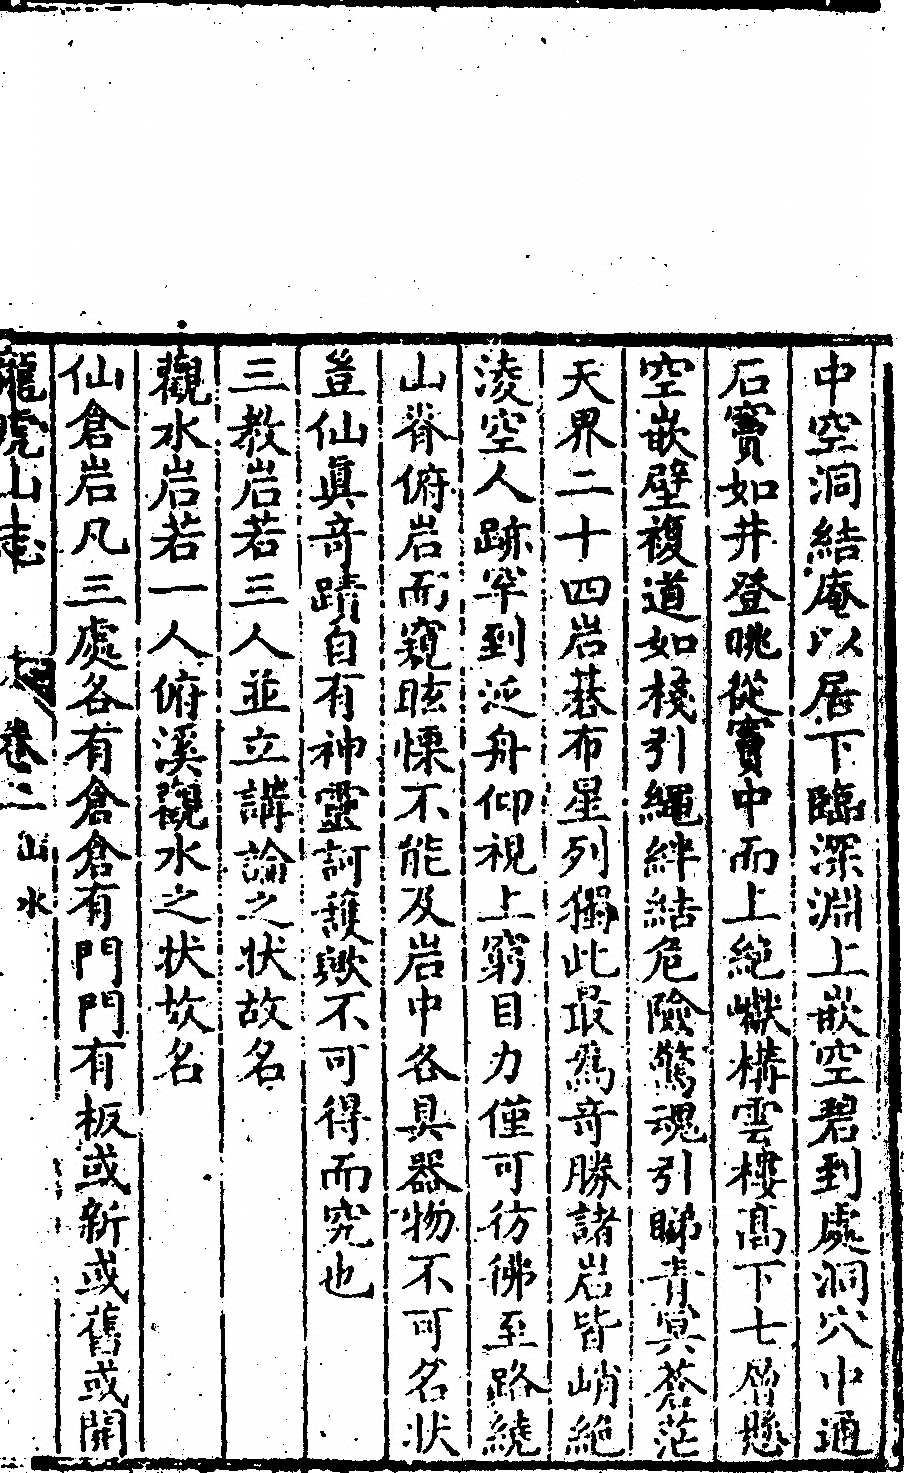 中空洞結庵以居下臨深淵上嵌空碧到處洞穴中通
石竇如井登眺從竇中而上絶巘構雲樓高下七層懸
空嵌壁複道如棧引繩絆結危險驚魂引睇青冥蒼茫
天界二十四岩碁布星列獨此最為奇勝諸岩皆峭絶
淩空人跡罕到泛舟仰視上窮目力僅可彷彿至路繞
山脊俯岩而窺眩慄不能及岩中各具器物不可名狀
豈仙眞奇蹟自有神靈訶護歟不可得而究也
三教岩若三人並立講論之狀故名
觀水岩若一人俯溪觀水之狀故名
仙倉岩凡三處各有倉倉有門門有板或新或舊或開
龍虎山志 卷之二 山水